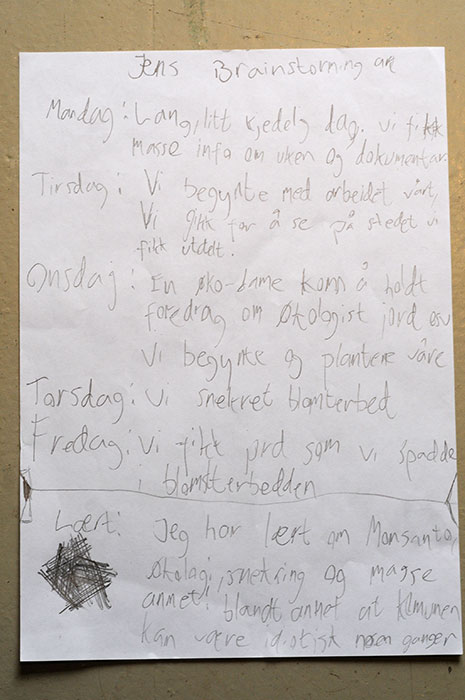 Jens Brainstorning ark
Mandag: Lang, litt kjedelig dag. vi fikk
masse info om uken og dokumentar.
Tirsdag: Vi begynte med arbeidet vårt,
Vi gikk for å se på stedet vi
fikk utdelt.
Onsdag: En øko-dame kom å holdt
foredrag om økologist jord osv
Vi begynte og plantene våre
Torsdag: Vi snekret blomterbed
Fredag: Vi fikk jord som vi spadde
i blomstterbedden
Lært: Jeg har lært om Monsanto,
økologi, snekring og masse
annet! blandt annet at
kan være idiotisk noen ganger